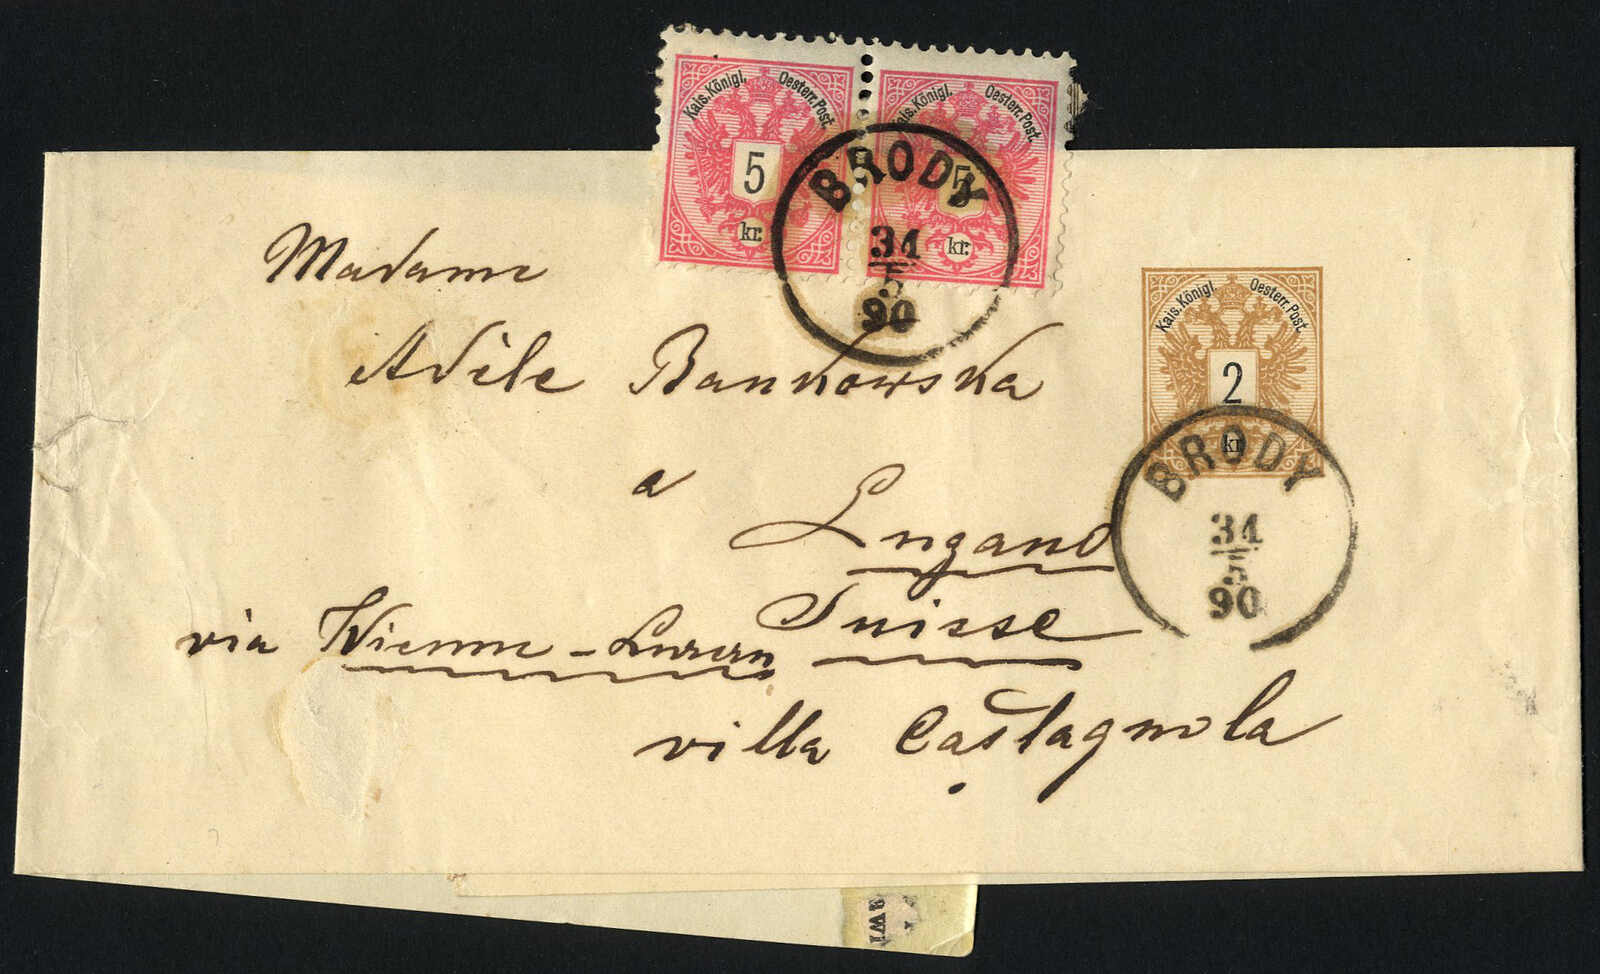 Kais. Königl. Oesterr. Post.
5
kr.
Kais. Königl. Oesterr. Post.
5
kr.
BRODY
31
5
90
Madame
Adèle Bankowska
a
Lugano
Suisse
via Vienne - Luzern
villa Castagnola
Kais. Königl. Oesterr. Post.
2
kr
BRODY
31
5
90